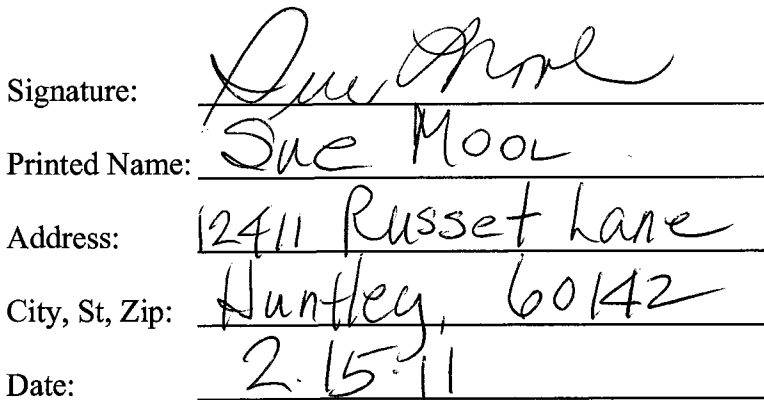 Signature: Sue Mool
Printed Name: Sue Mool
Address: 12411 Russet Lane
City, St, Zip: Huntley, 60142
Date: 2.15.11